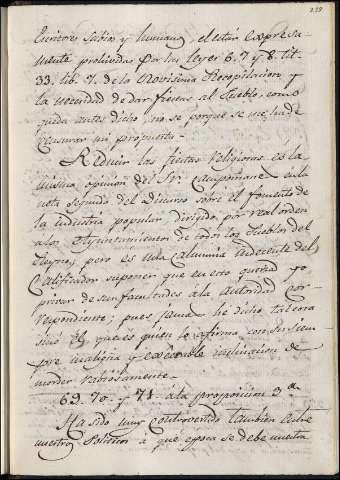 Escritores Sabios y humanos, el estar expresa-
mente prohividas por las leyes 6. 7 y 8. tit.
33. lib. 7. de la Novisima Recopilacion y
la necesidad de dar fiestas al Pueblo, como
queda antes dicho, no se porque se me ha de
censurar mi propuesta.
Reducir las fiestas religiosas es la
misma opinion del Sr. Campomanes en la
nota segunda del discurso sobre el fomento de
la industria popular dirigido por real orden
a los Ayuntamientos de todos los Pueblos del
Reyno; pero es una calumnia indecente del
Calificador suponer que en esto queria yo
privar de sus facultades á la autoridad cor-
respondiente; pues jamas he dicho tal cosa
sino él, que es quien lo afirma con su siem-
pre maligna y execrable inclinacion de
morder rabiosamente.
69. 70. y 71. á la proposicion 3.a
Ha sido muy controvertido tambien entre
nuestros Politicos á que epoca se debe nuestra